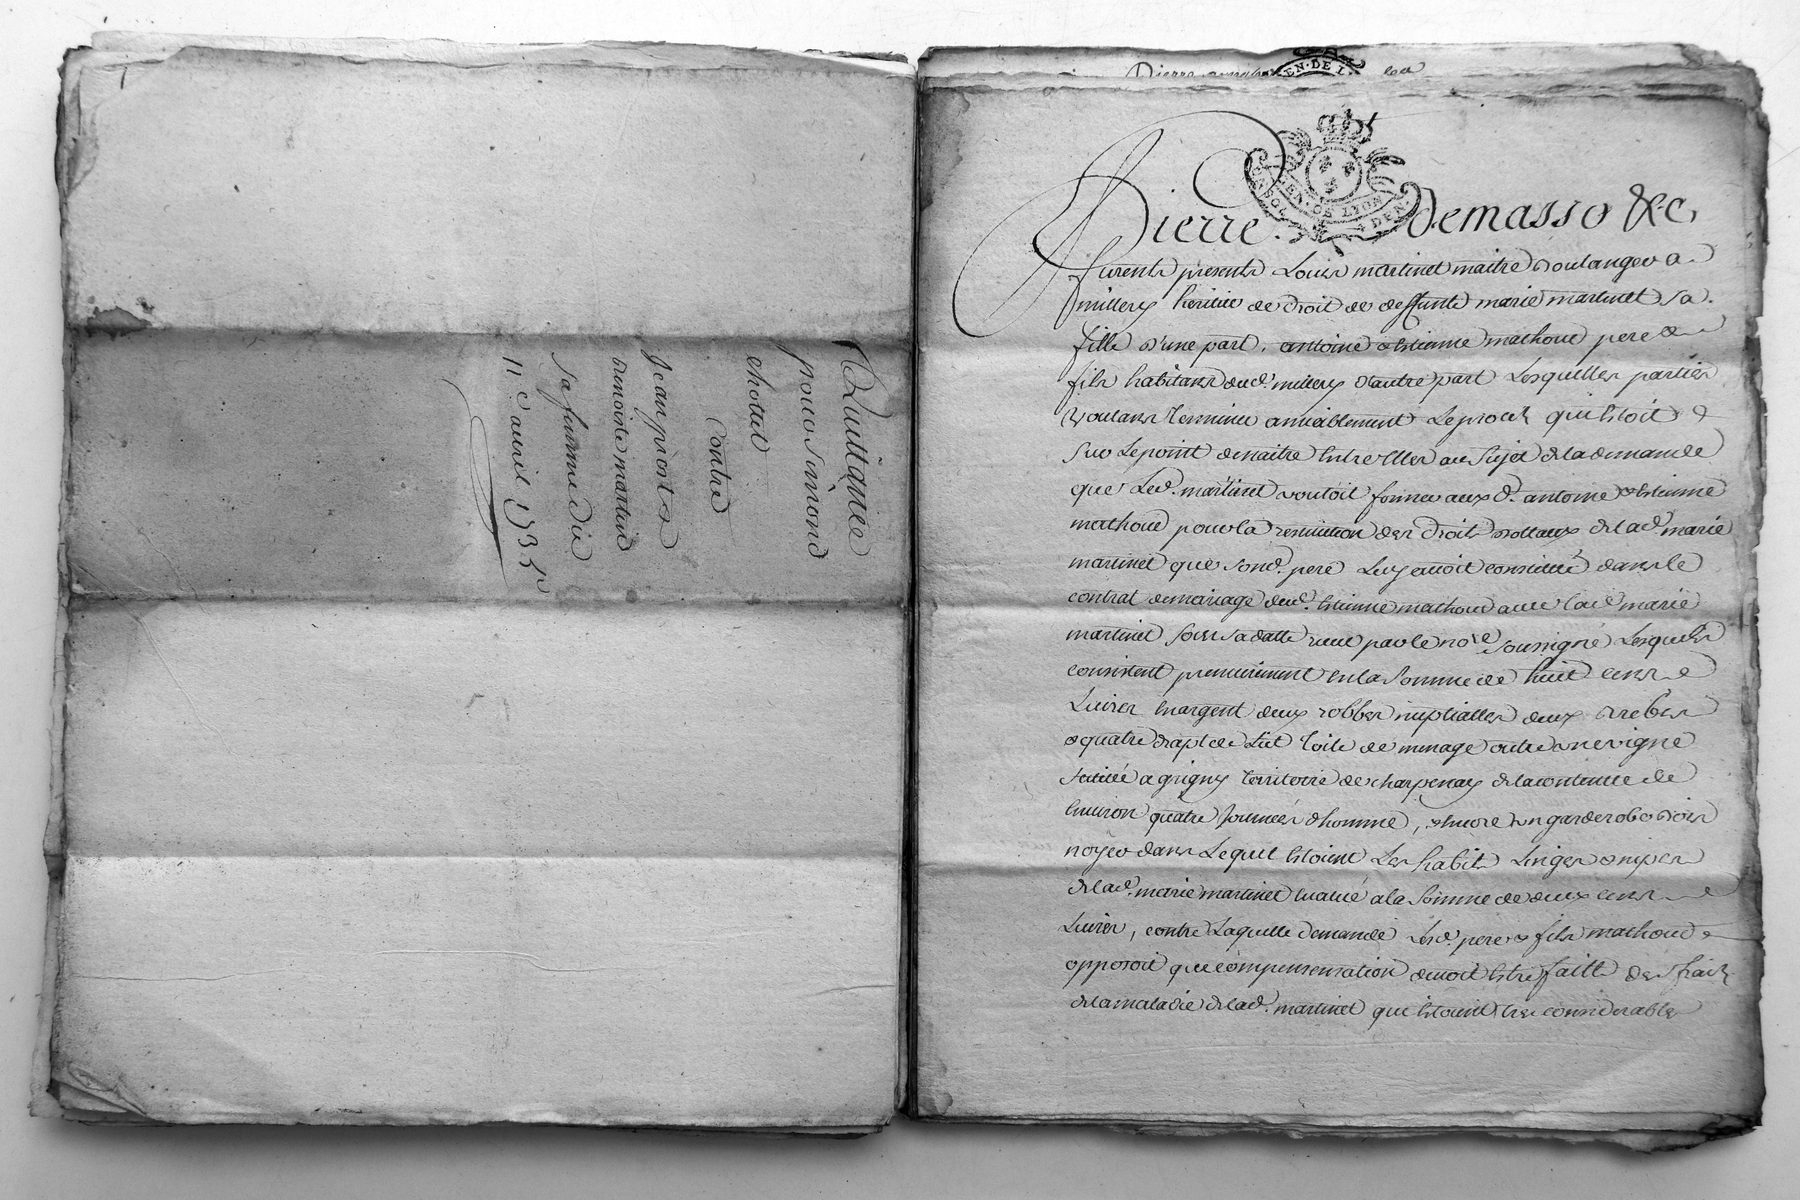 Quittance
pour simond
chollet
contre
Jean
benoiste martin
sa femme
11e avril 1735
Pierre
EN·DE L
GEN·DE LYON
Pierre Demasso &c
furent presents Louis martinet maitre boulanger a
millery heritier de droit de deffunte marie martinet sa
fille d'une part, antoine & etienne mathoud pere &
fils habitans dud. millery d'autre part Lesquelles parties
voulans terminer amiablement Le proces qui etoit
sur Le point de naitre entre Elles au sujet de la demande
que Led. martinet vouloit former aux d. antoine & etienne
mathoud pour la restitution des droits dottaux de lad. marie
martinet que sond. pere Luy avoit constitué dans le
contrat de mariage dud. etienne mathoud avec lad. marie
martinet sous sa datte receu par le nore soussigné Lesquels
consistent premierement en la somme de huit cens
Livres en argent deux robbes nuptialles deux brebis
& quatre draps de Lict toile de menage outre une vigne
scituée a grigny territoire de charpenay de la contenue de
environ quatre journées d'homme, & encore un garderobe bois
noyer dans Lequel etoient Les habits Linges & nipes
de lad. marie martinet evalué a la somme de deux cens
Livres, contre Laquelle demande Lesd. pere & fils mathoud
opposoit que compensation devoit etre faitte des frais
de la maladie de lad. martinet qui etoient tres considerables